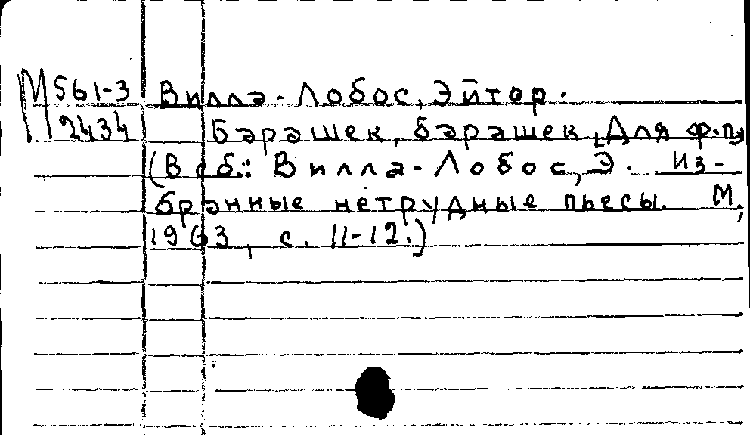 М 561-3 Вилла-Лобос, Эйтор.
2434 Барашек, барашек. [Для ф.п.]
(В сб.: Вилла-Лобос, Э. Из-
бранные нетрудные пьесы. М.,
1963, с. 11-12.)